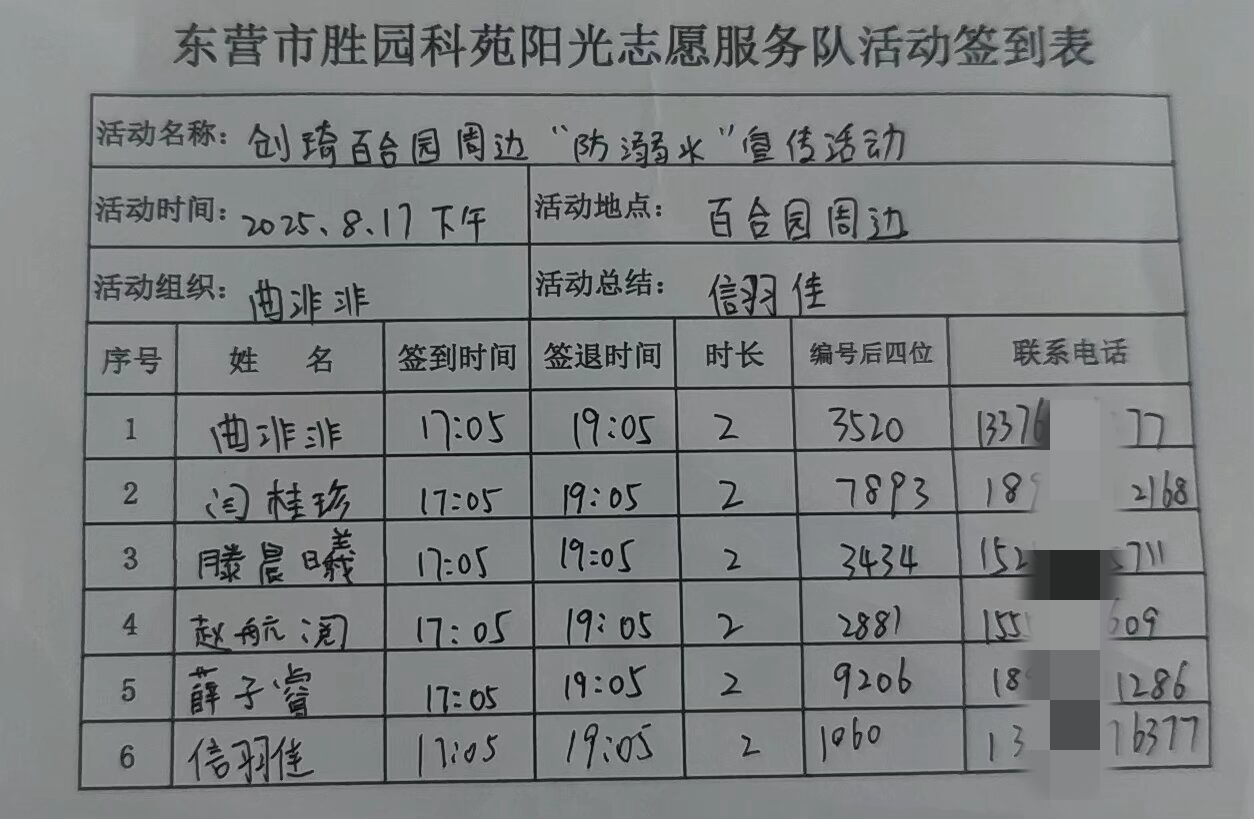 东营市胜园科苑阳光志愿服务队活动签到表
活动名称: 创琦百合园周边“防溺水”宣传活动
活动时间: 2025、8.17下午 活动地点: 百合园周边
活动组织: 曲非非 活动总结: 信羽佳
序号 姓 名 签到时间 签退时间 时长 编号后四位 联系电话
1 曲非非 17:05 19:05 2 3520 13376 77
2 闫桂珍 17:05 19:05 2 7893 189 2168
3 滕晨曦 17:05 19:05 2 3434 152 5711
4 赵航 17:05 19:05 2 2881 155 609
5 薛子睿 17:05 19:05 2 9206 18 1286
6 信羽佳 17:05 19:05 2 1060 13 76377